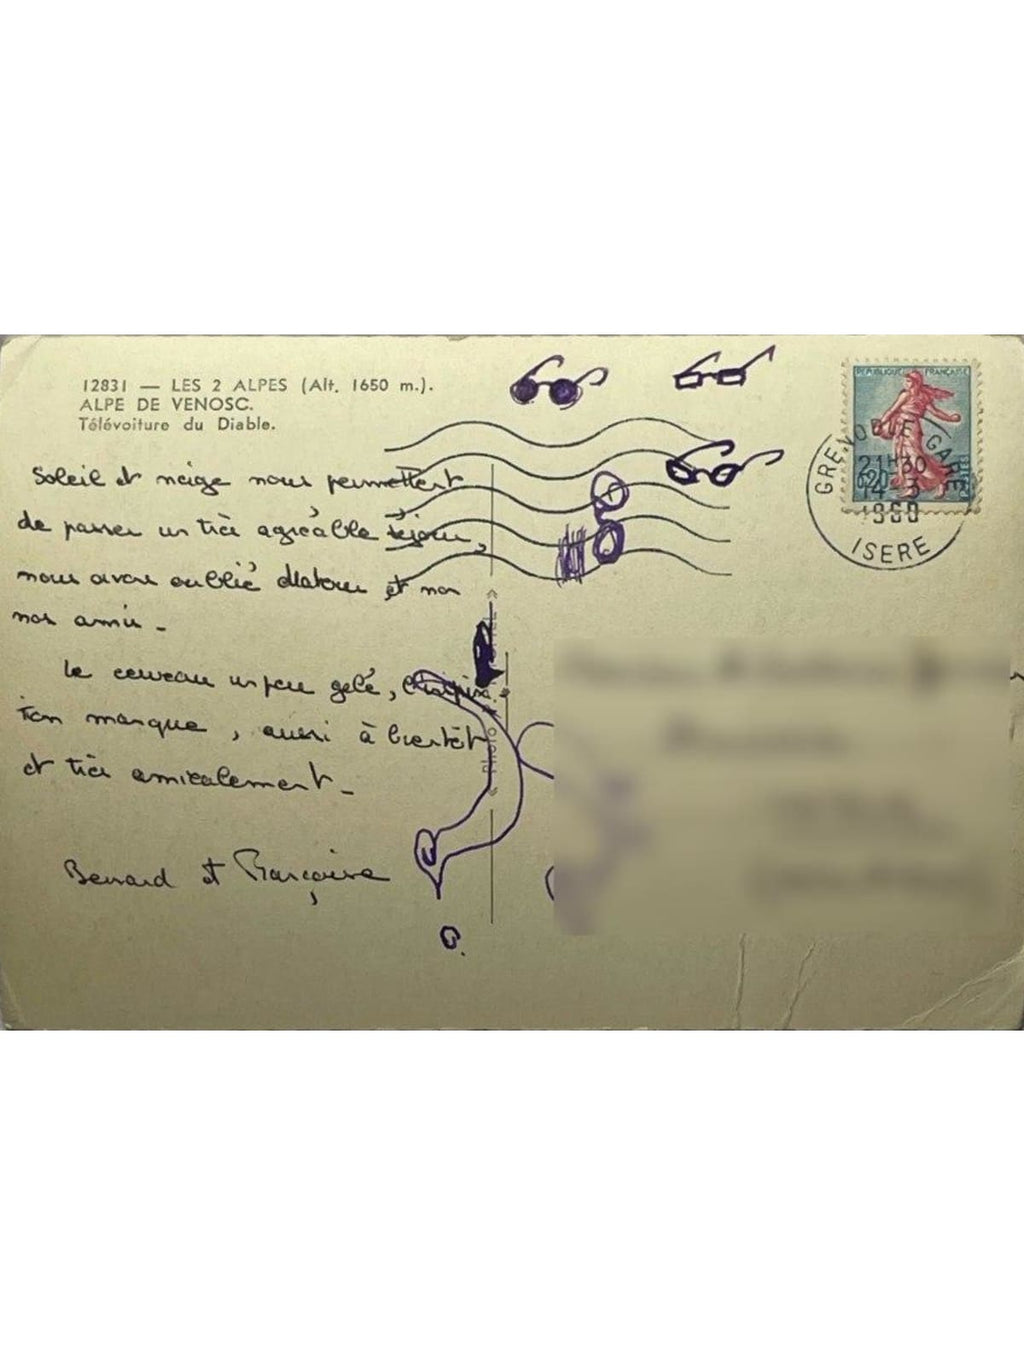 12831 — LES 2 ALPES (Alt. 1650 m.).
ALPE DE VENOSC.
Télévoiture du Diable.
Soleil et neige nous permettent
de passer un très agréable séjour,
nous avons oublié et non
nos amis -
Le cerveau un peu gelé, l'inspira-
tion manque, aussi à bientôt
et très amicalement -
Bernard et Françoise
« Photo
REPUBLIQUE FRANÇAISE
0,20
GRENOBLE GARE
21H30
14 - 3
1960
ISERE